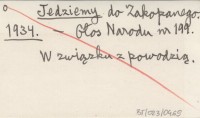 Jedziemy do Zakopanego.
1934. – Głos Narodu nr 199.
W związku z powodzią.